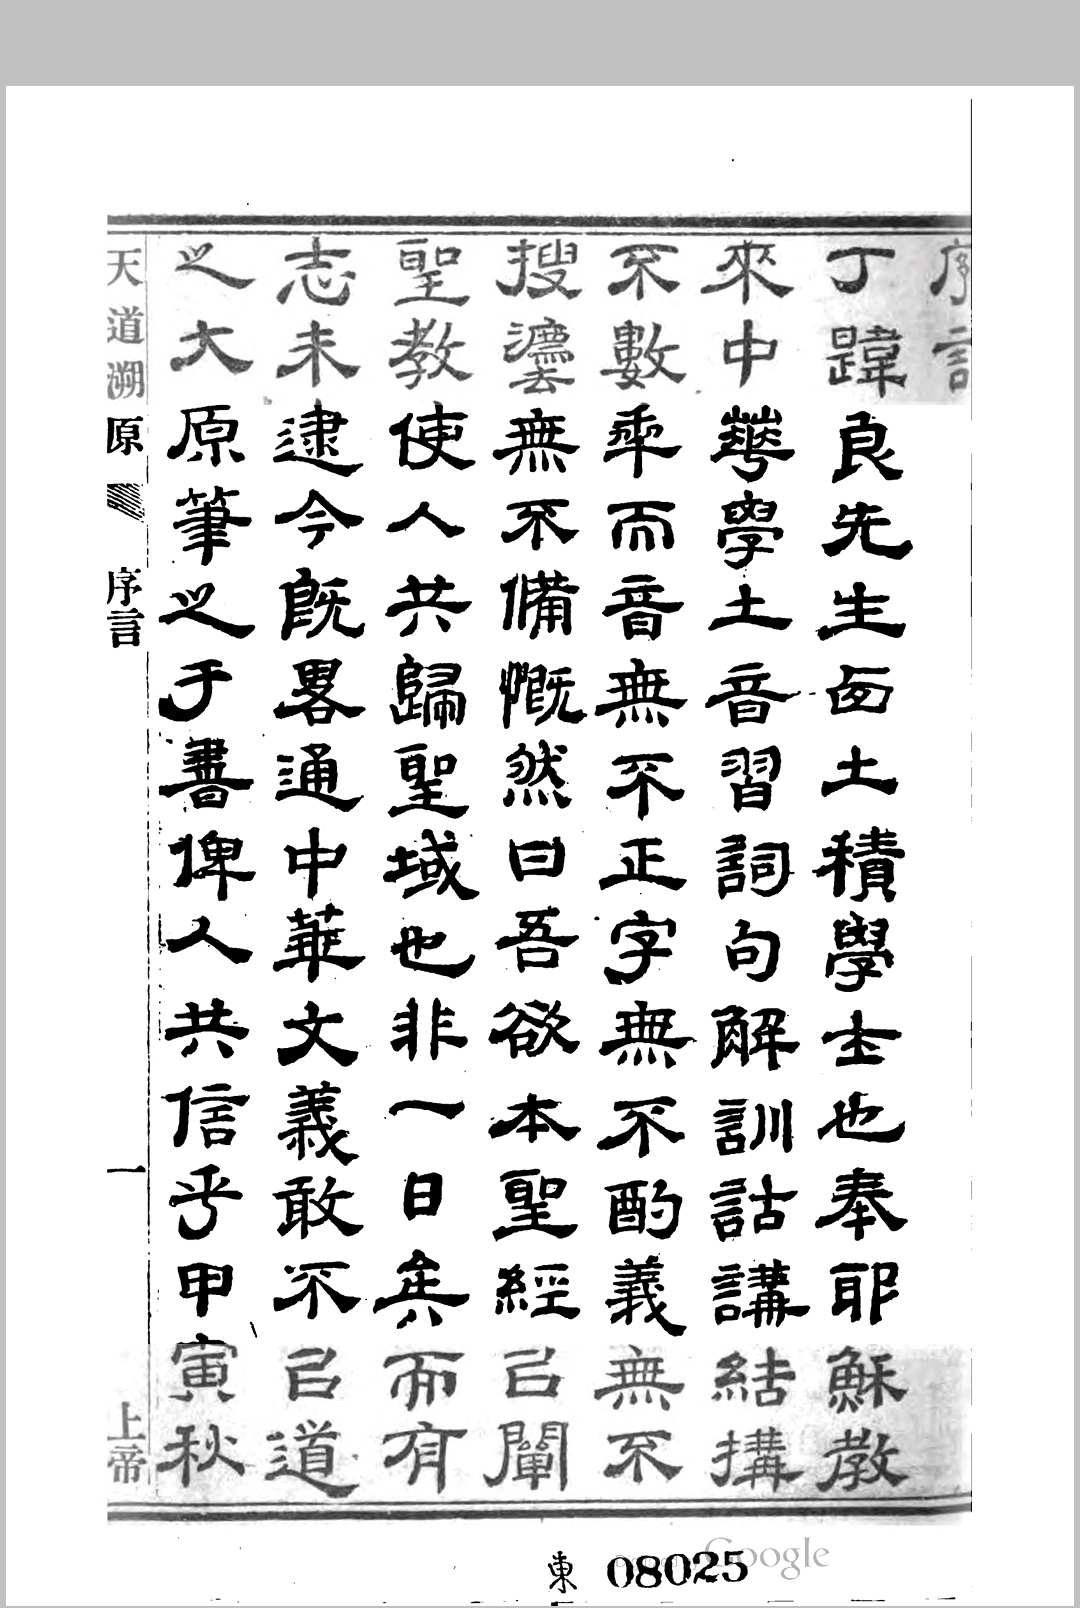 序言
丁韙良先生西土積學士也奉耶穌教
來中華學土音習詞句解訓詁講結搆
不數年而音無不正字無不酌義無不
搜灋無不備慨然曰吾欲本聖經㠯闡
聖教使人共歸聖域也非一日矣而有
志未逮今旣畧通中華文義敢不㠯道
之大原筆之于書俾人共信乎甲寅秋
天道溯原 序言 一 上帝
東 08025
Google